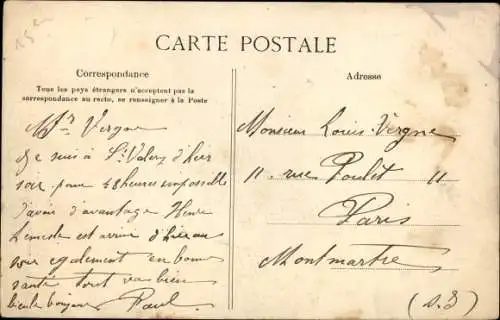 CARTE POSTALE
Correspondance
Tous les pays étrangers n'acceptent pas la
correspondance au recto, se renseigner à la Poste
Mr Vergne
Je suis à St Valery d'hier
soir pour 48 heures impossible
d'avoir d'avantage Henri
est arrivé d'hier au
soir également en bonne
santé tout va bien
Paul
Adresse
Monsieur Louis Vergne
11 rue Poulet 11
Paris
Montmartre